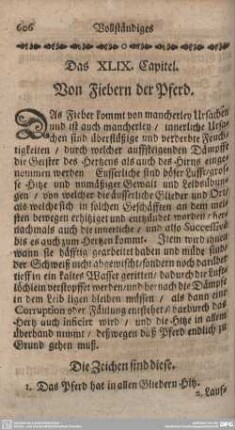 606 Vollständiges
Das XLIX. Capitel.
Von Fiebern der Pferd.
DAs Fieber kommt von mancherley Ursachen
und ist auch mancherley / innerliche Ursa-
chen sind überflüßige und verderbte Feuch-
tigkeiten / durch welcher auffsteigenden Dämpffe
die Geister des Hertzens als auch des Hirns einge-
nommen werden Eusserliche sind böser Lufft / gros-
se Hitze und unmäßiger Gewalt und Leibsübun-
gen / von welcher die äusserliche Glieder und Ort /
als welche sich in solchen Geschäfften an dem mei-
sten bewegen erhitziget und entzündet worden / her-
nachmals auch die innerliche / und also Successivè
bis es auch zum Hertzen kommt. Item wird ihnen
wann sie hässtig gearbeitet haben und müde sind /
der Schweiß nicht abgewischt sondern noch darüber
tieff in ein kaltes Wasser geritten / dadurch die Lufft-
löchlein verstopffet werden / und hernach die Dämpffe
in dem Leib ligen bleiben müssen / als dann eine
Corruption oder Fäulung entstehet / dardurch das
Hertz auch inficirt wird / und die Hitz in allem
überhand nimmt / deßwegen daß Pferd endlich zu
Grund gehen muß.
Die Zeichen sind diese.
1. Das Pferd hat in allen Gliedern Hitz.
2. Lauf-